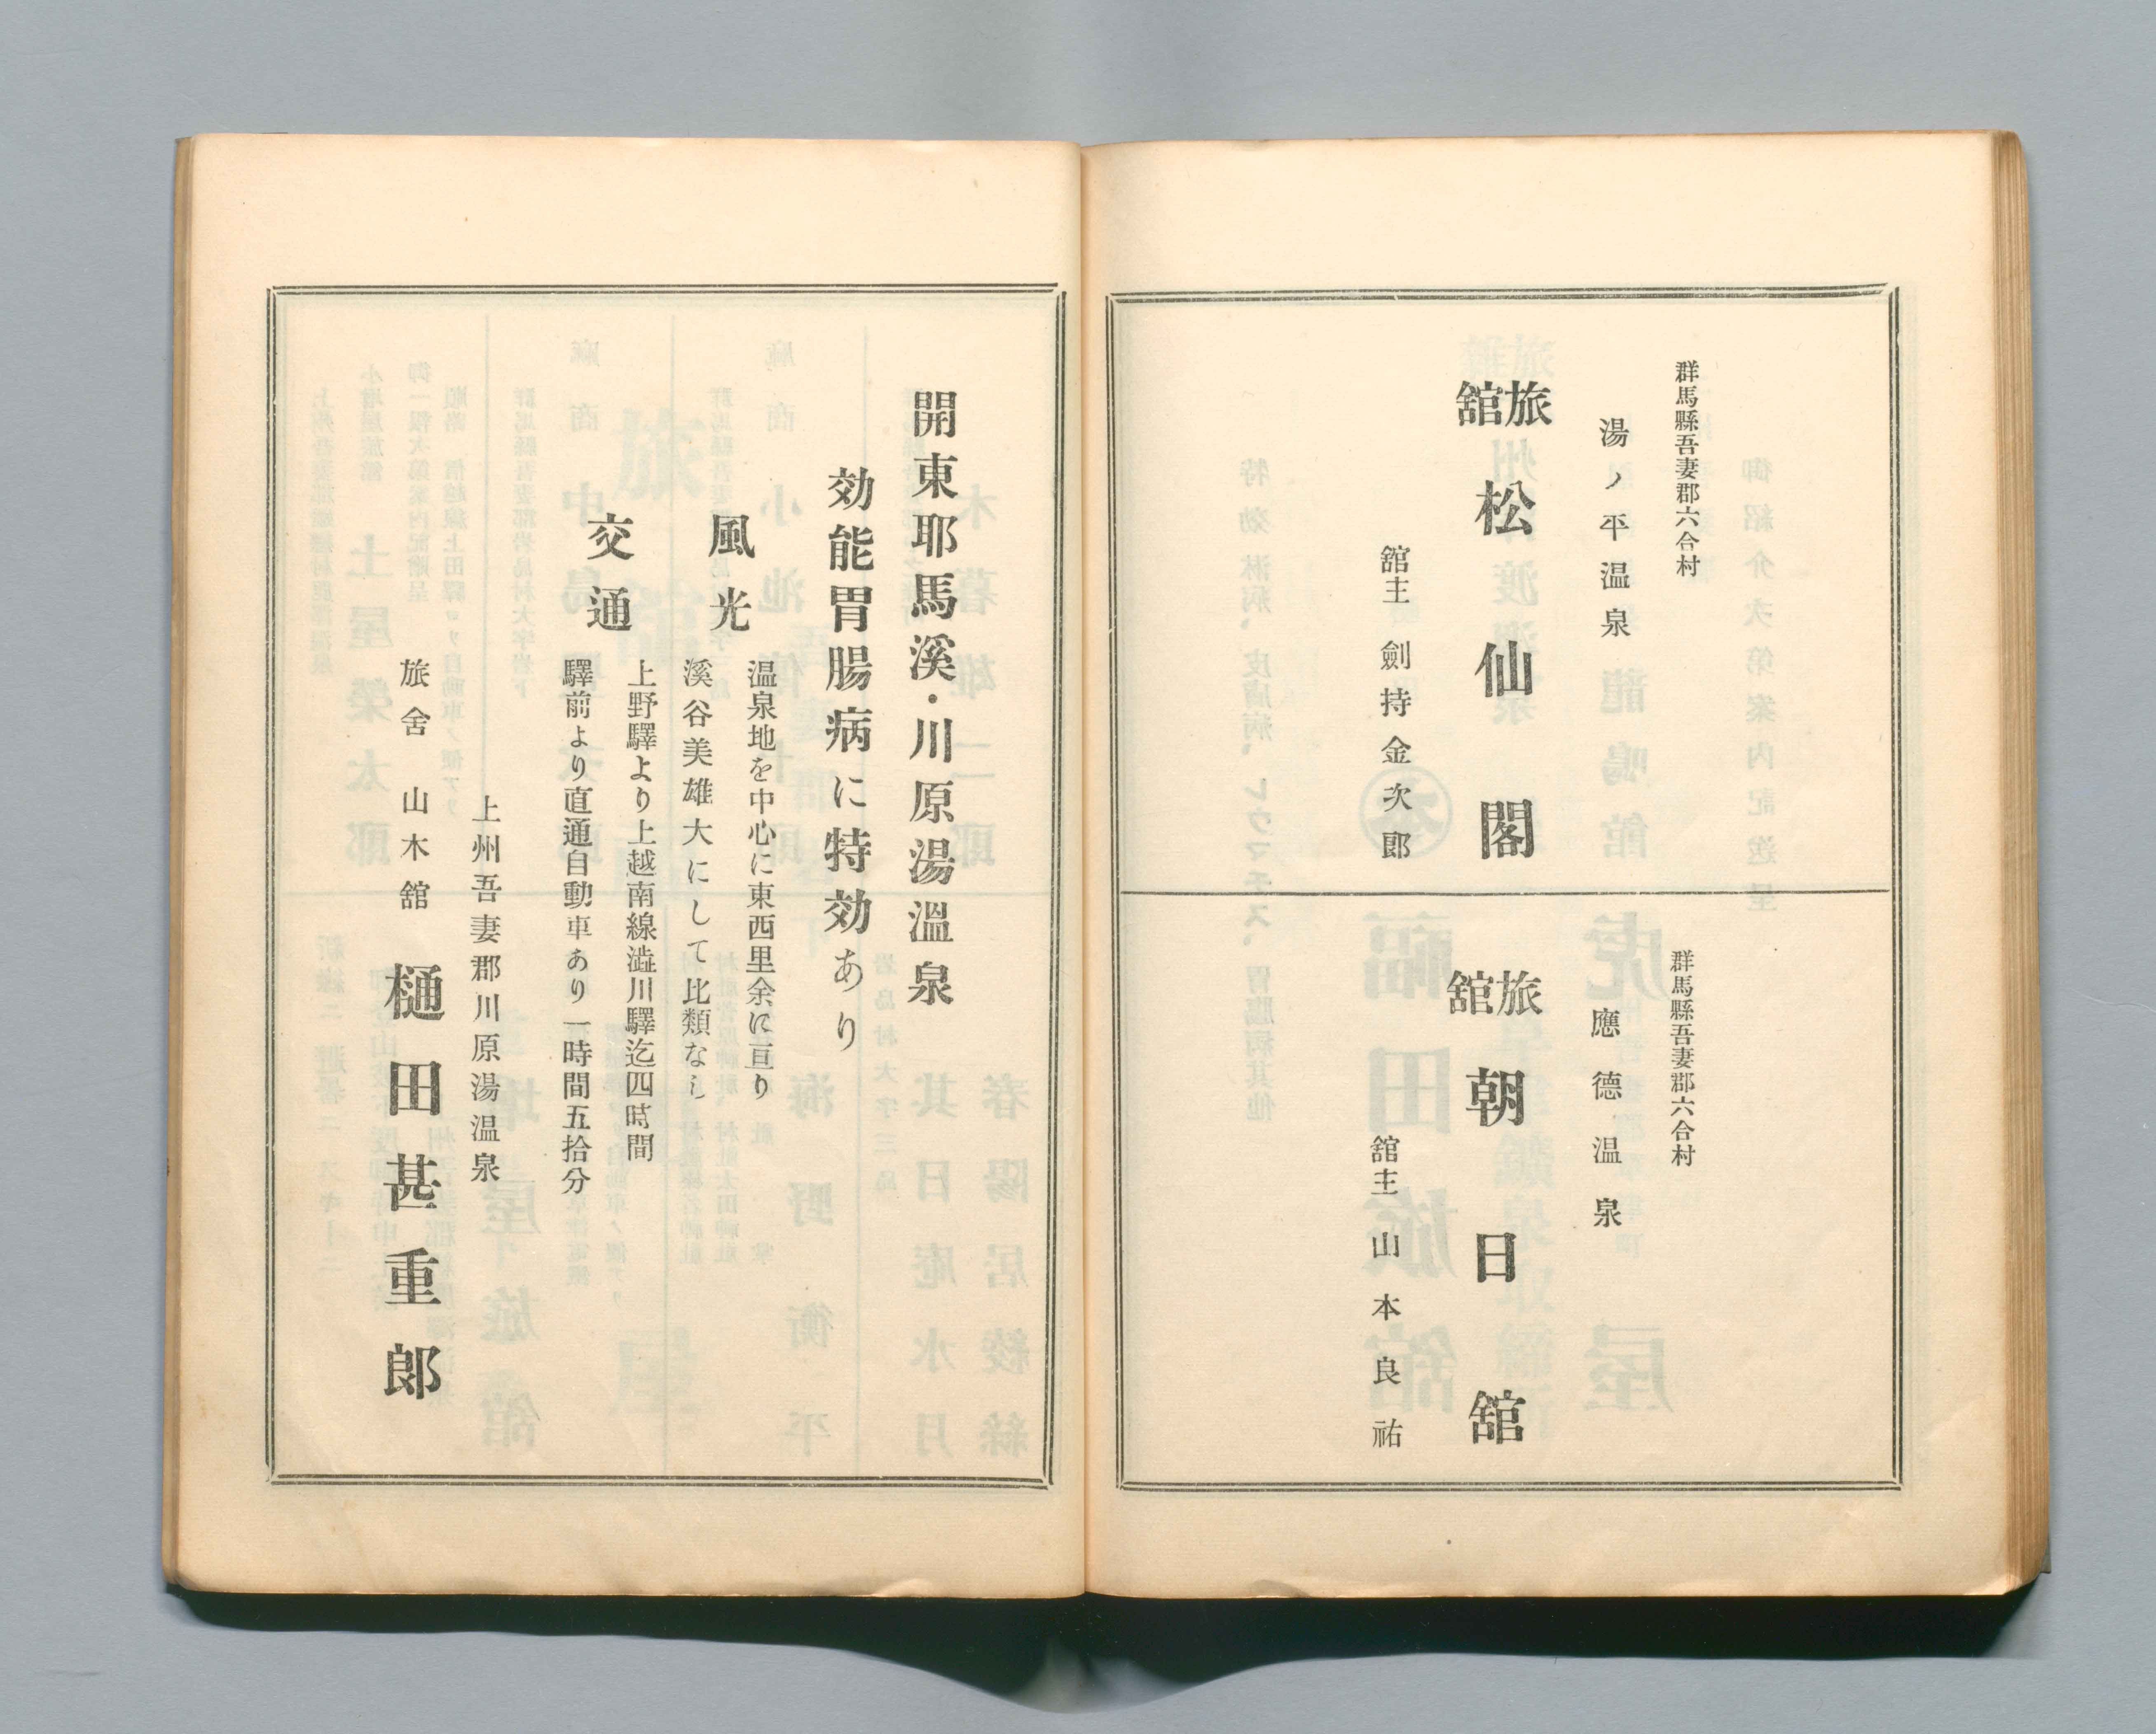 群馬縣吾妻郡六合村
湯ノ平温泉
旅舘 松仙閣
舘主 劍持金次郎
群馬縣吾妻郡六合村
應德温泉
旅舘 朝日舘
舘主 山本良祐
開東耶馬溪・川原湯溫泉
効能胃腸病に特効あり
風光
温泉地を中心に東西里余に亘り
溪谷美雄大にして比類なし
交通
上野驛より上越南線澁川驛迄四時間
驛前より直通自動車あり一時間五拾分
上州吾妻郡川原湯温泉
旅舍 山木舘 樋田甚重郎